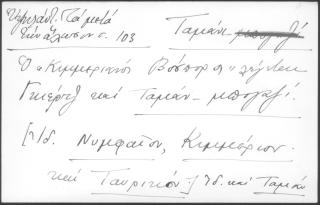 Ὑψηλάντ. Τὰ μετὰ
τὴν ἅλωσιν σ. 103
Ταμὰν- μπογαζί
Ὁ «Κιμμερικὸς Βόσπορος» λέγεται
Γκιέρτζ καὶ Ταμὰν-μπογαζί.
[πβ. Νυμφαῖον, Κιμμέριον
καὶ Ταυρικὸν] Ἰδ. καὶ Ταμὰν